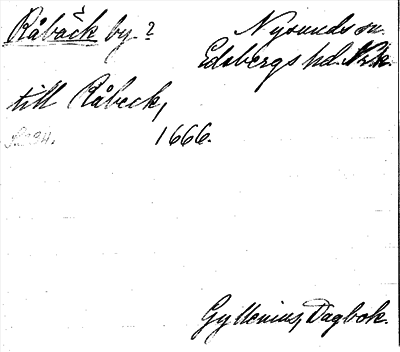 Råbäck by? Nysunds sn.
Edsbergs hd. Nke.
till Råbeck,
1666.
Gyllenius, Dagbok.